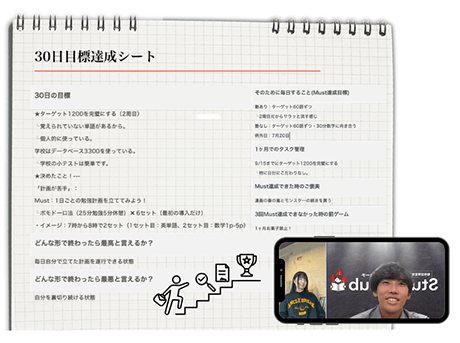 30日目標達成シート
30日の目標
★ターゲット1200を完璧にする（2周目）
・覚えられていない単語があるから。
・個人的に使っている。
学校はデータベース3300を使っている。
・学校の小テストは簡単です。
★決めたこと！―
「計画が苦手」：
Must：1日ごとの勉強計画を立ててみよう！
・ポモドーロ法（25分勉強5分休憩）✕6セット（最初の導入だけ）
・イメージ：7時から8時で2セット（1セット目：英単語、2セット目：数学1p-5p）
どんな形で終わったら最高と言えるか？
毎日自分で立てた計画を遂行できる状態
どんな形で終わったら最悪と言えるか？
自分を裏切り続ける状態
そのために毎日すること(Must達成目標)
塾あり：ターゲット60語ずつ
・2周目だからサラッと流す感じ
塾なし：ターゲット60語ずつ・30分数学に向き合う
例外日：7月20日
1ヶ月でのタスク管理
8/15までにターゲット1200を完璧にする
・特に日にちにこだわりなし。
Must達成できた時のご褒美
漫画の春の嵐とモンスターの続きを買う
3回Must達成できなかった時の罰ゲーム
1ヶ月お菓子禁止！
Stu
ub